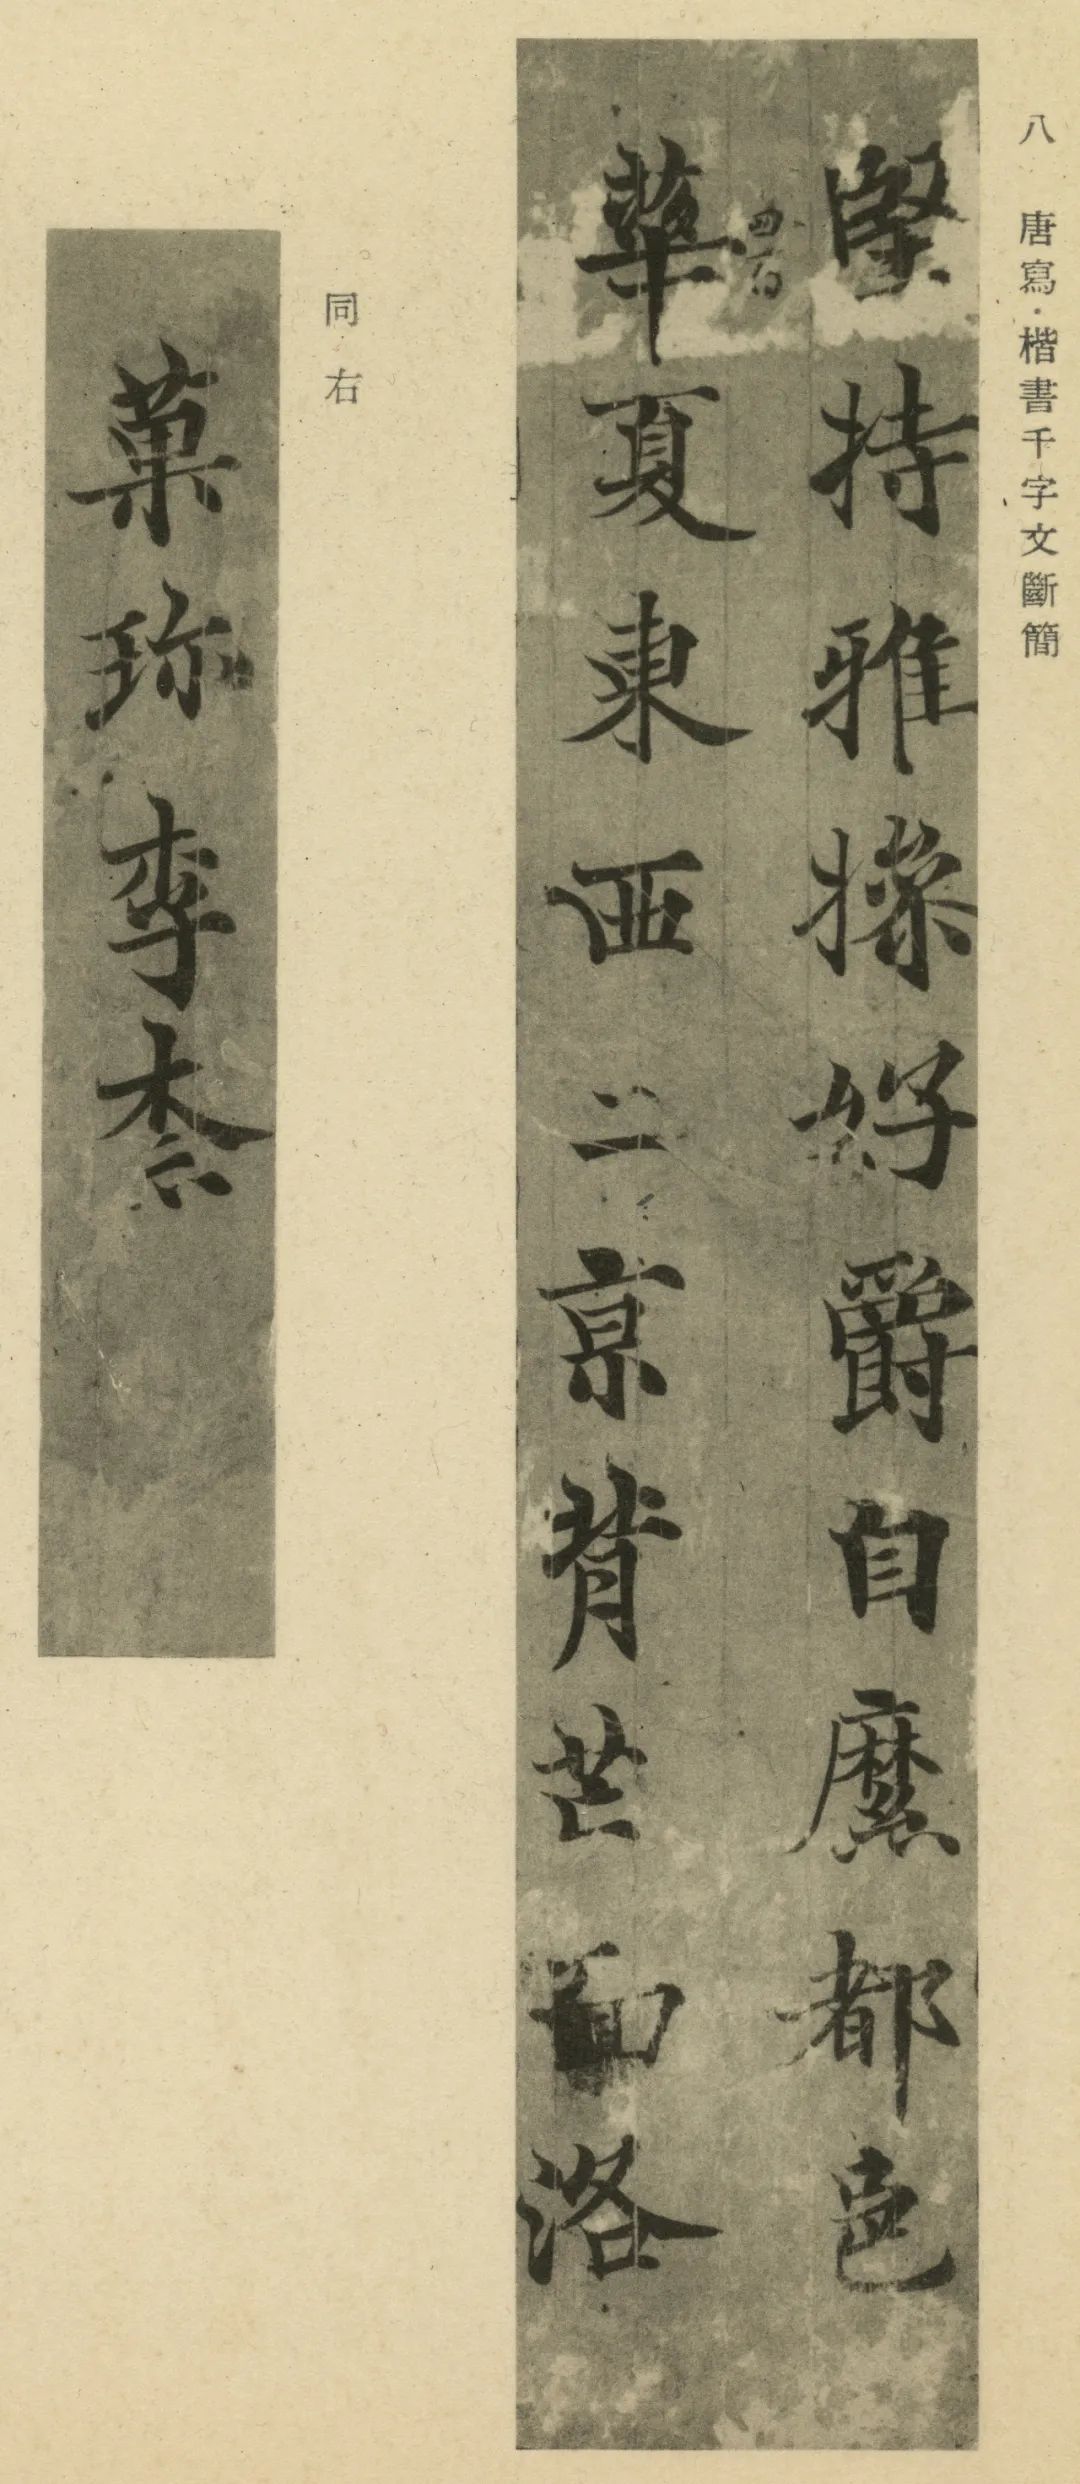 八 唐寫·楷書千字文斷簡
堅持雅操好爵自縻都邑
四百
華夏東西二京背芒面洛
同右
菓珎李柰